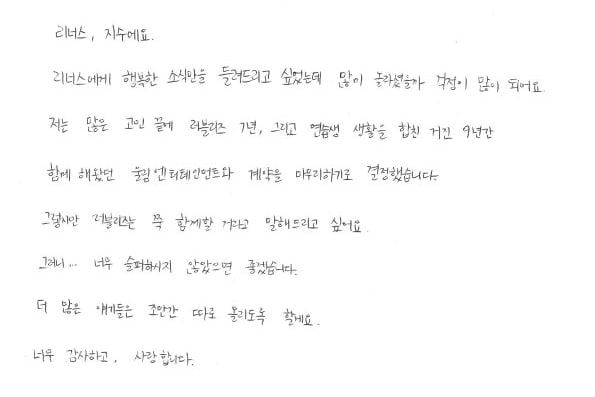 러너스, 지수에요.
러너스에게 행복한 소식만을 들려드리고 싶었는데 많이 놀라셨을까 걱정이 많이 되어요.
저는 많은 고민 끝에 러블리즈 7년, 그리고 연습생 생활을 합친 거진 9년간
함께 해왔던 울림엔터테인먼트와 계약을 마무리하기로 결정했습니다.
그렇지만 러블리즈는 쭉 함께할 거라고 말해드리고 싶어요.
그러니... 너무 슬퍼하시지 않았으면 좋겠습니다.
더 많은 얘기들은 조만간 따로 올리도록 할게요.
너무 감사하고, 사랑합니다.